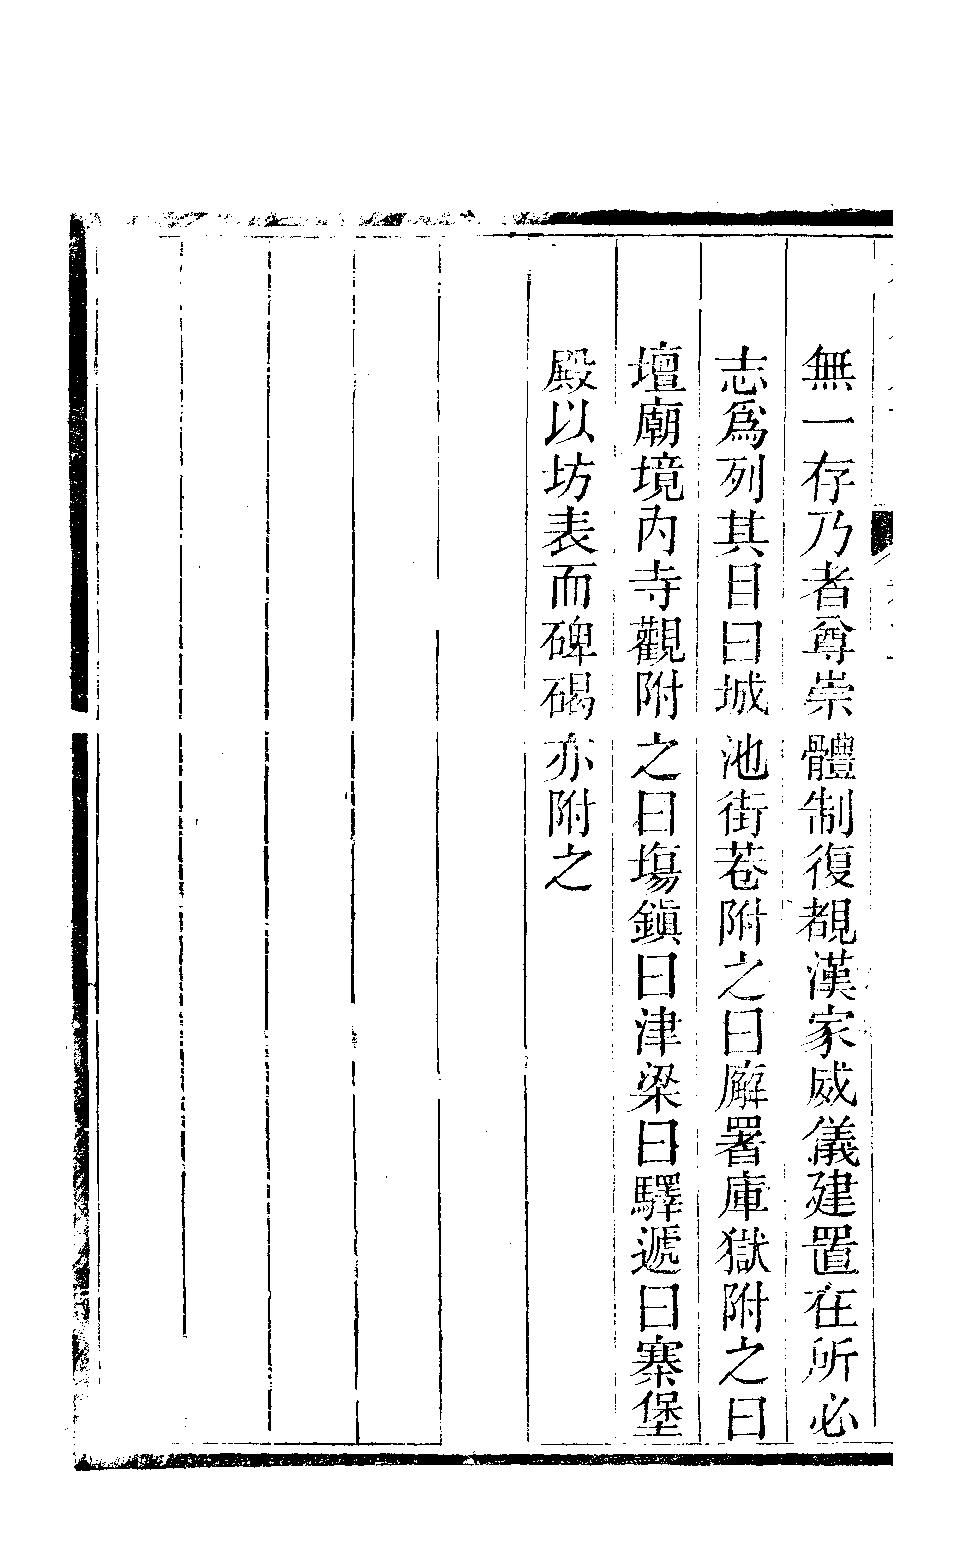 無一存乃者尊崇體制復覩漢家威儀建置在所必
志爲列其目曰城池街巷附之曰廨署庫獄附之曰
壇廟境內寺觀附之曰塲鎭曰津梁曰驛遞曰寨堡
殿以坊表而碑碣亦附之